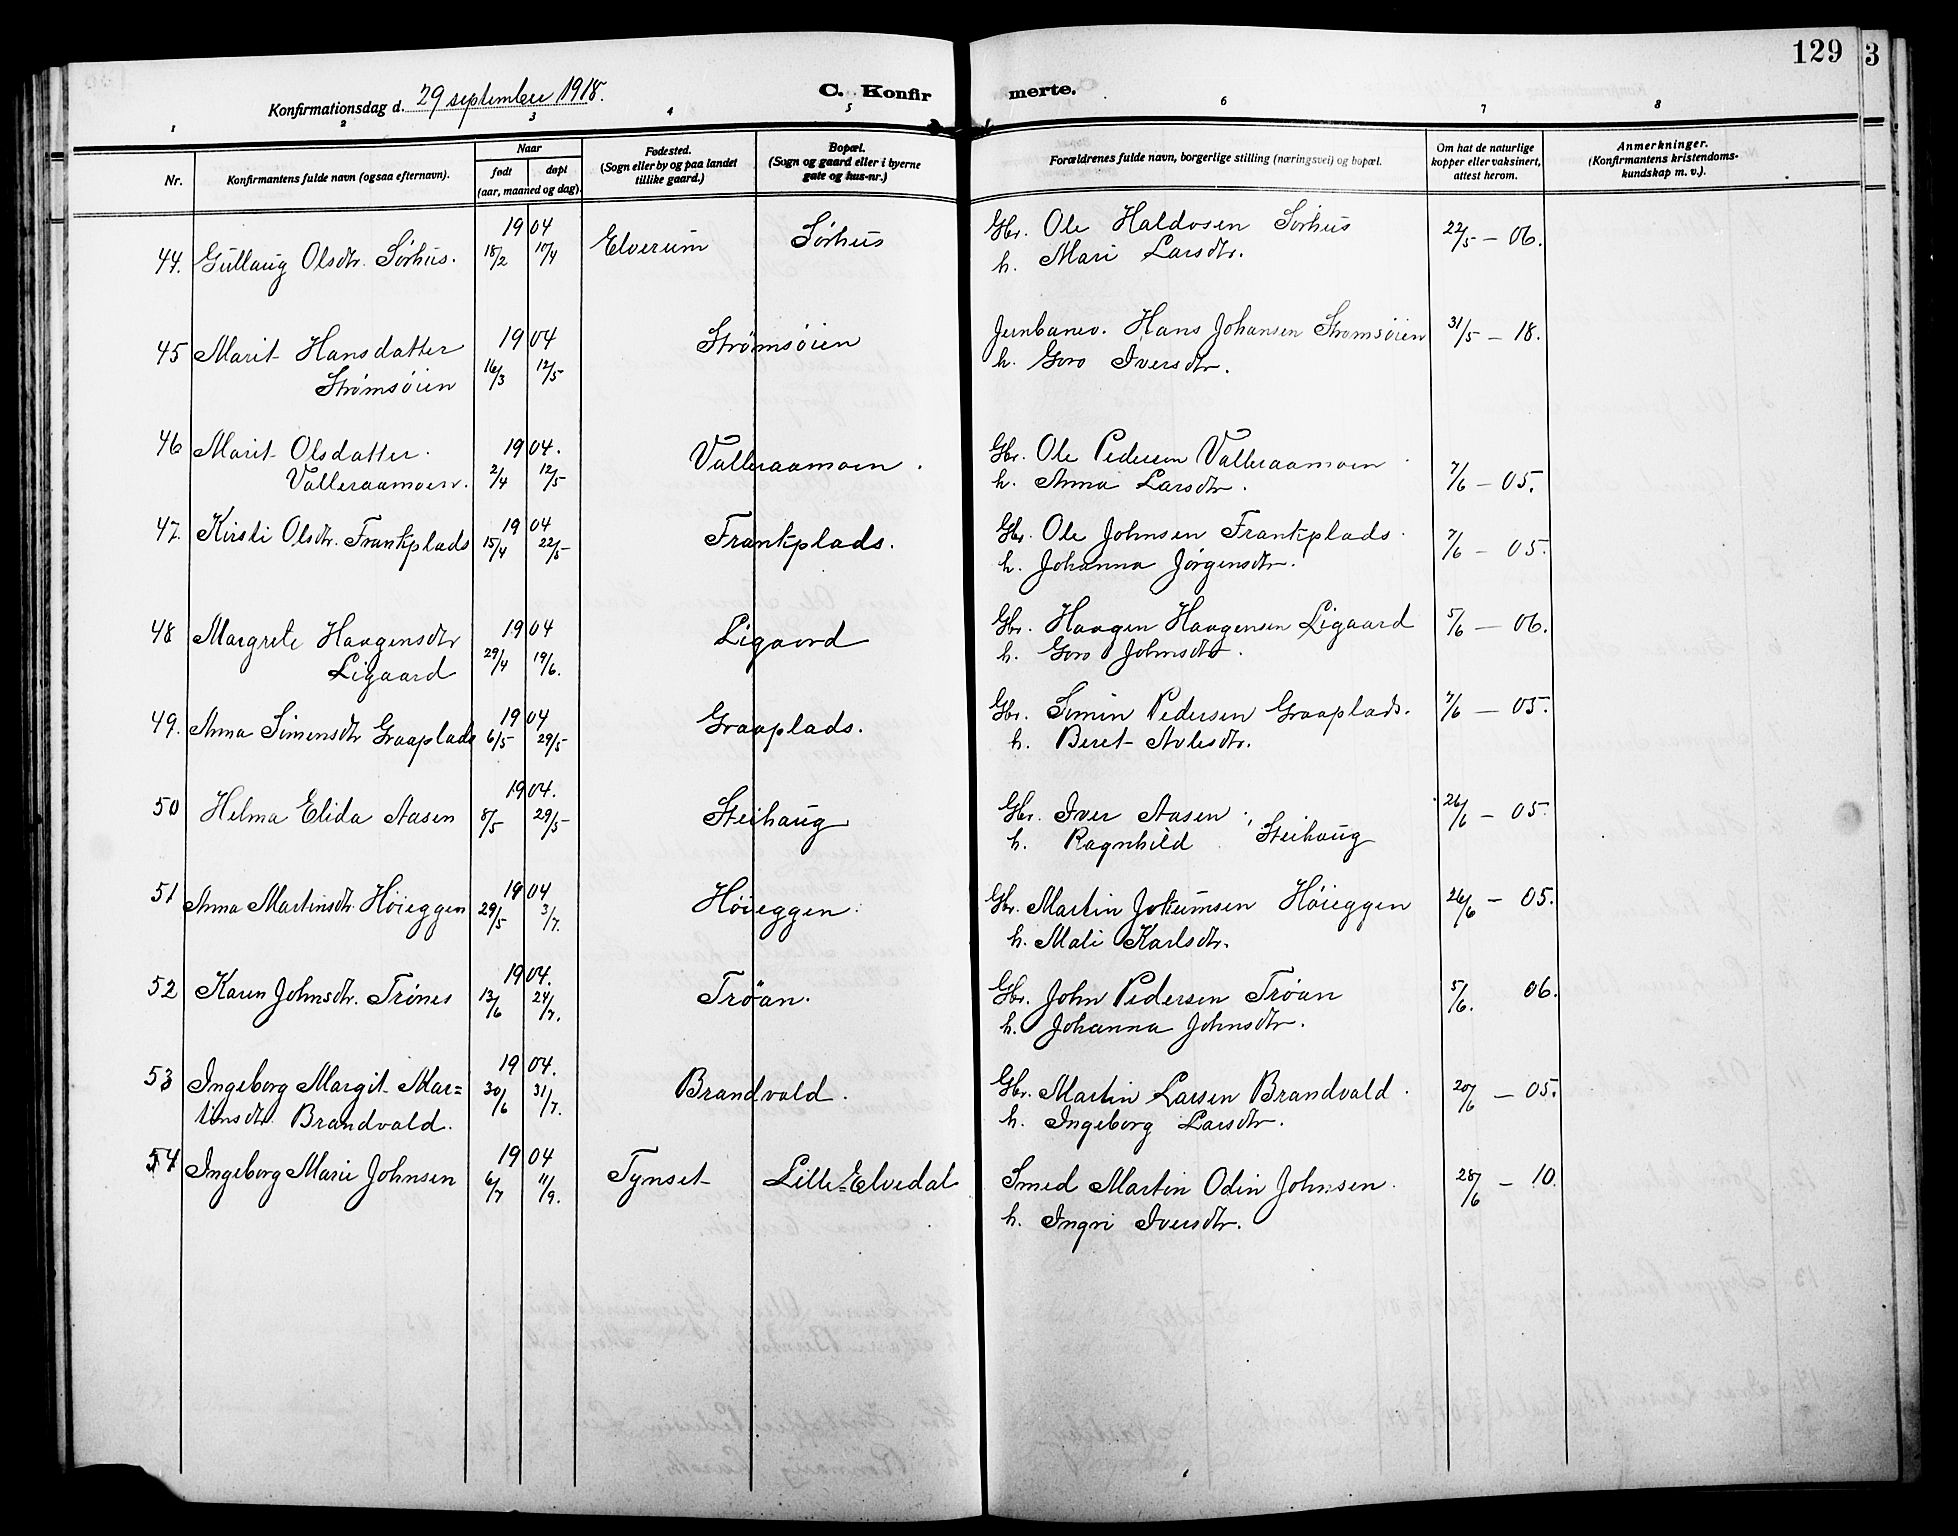 129
3
Konfirmationsdag d. 29 september 1918.
C. Konfirmerte.
1 2 3 4 5 6 7 8
Nr.
Konfirmantens fulde navn (ogsaa efternavn).
Naar
født døpt
(aar, maaned og dag).
Fødested.
(Sogn eller by og paa landet
tillike gaard.)
Bopæl.
(Sogn og gaard eller i byerne
gate og hus-nr.)
Forældrenes fulde navn, borgerlige stilling (næringsvei) og bopæl.
Om hat de naturlige
kopper eller vaksinert,
attest herom.
Anmerkninger.
(Konfirmantens kristendoms-
kundskap m. v.).
1904
44. Gullaug Olsdtr. Sørhus. 18/2 17/4 Elverum Sørhus Gbr. Ole Haldosen Sørhus 22/5 - 06.
h. Mari Larsdtr.
45 Marit Hansdatter 1904 Strømsøien Jernbanev. Hans Johansen Strømsøien 31/5 - 18.
Strømsøien 16/3 12/5 h. Goro Iversdtr.
46 Marit Olsdatter 1904. Valleraamoen. Gbr. Ole Pedersen Valleraamoen
Valleraamoen. 2/4 12/5 h. Anna Larsdtr. 7/6 - 05.
1904
47. Kirsti Olsdtr. Frankplads 15/4 22/5 Frankplads. Gbr. Ole Johnsen Frankplads. 7/6 - 05.
h. Johanna Jørgensdtr.
48 Margrete Haagensdtr 1904 Ligaard Gbr. Haagen Haagensen Ligaard 5/6 - 06.
Ligaard 29/4 19/6. h. Goro Johnsdtr.
1904
49. Anna Simensdtr Graaplads 6/5 29/5 Graaplads. Gbr. Simin Pedersen Graaplads. 7/6 - 05.
h. Beret Avlesdtr.
1904.
50 Helma Elida Aasen 8/5 29/5 Steihaug Gbr. Iver Aasen 26/6 - 05.
h. Ragnhild Steihaug
1904
51 Anna Martinsdtr. Høieggen 29/5 3/7. Høieggen. Gbr. Martin Jokumsen Høieggen 26/6 - 05.
h. Mali Karlsdtr.
1904.
52 Karen Johnsdtr. Trønes 12/6 24/7. Trøan. Gbr. John Pedersen Trøan 5/6. 06.
h. Johanna Johnsdtr.
1904.
53 Ingeborg Margit Mar= 30/6 31/7. Brandvald. Gbr. Martin Larsen Brandvald. 20/6 - 05.
tinsdtr. Brandvald. h. Ingeborg Larsdtr.
1904
54 Ingeborg Marie Johnsen 6/7 11/9. Tynset Lille-Elvedal Smed Martin Odin Johnsen. 28/6 - 10.
h. Ingri Iversdtr.